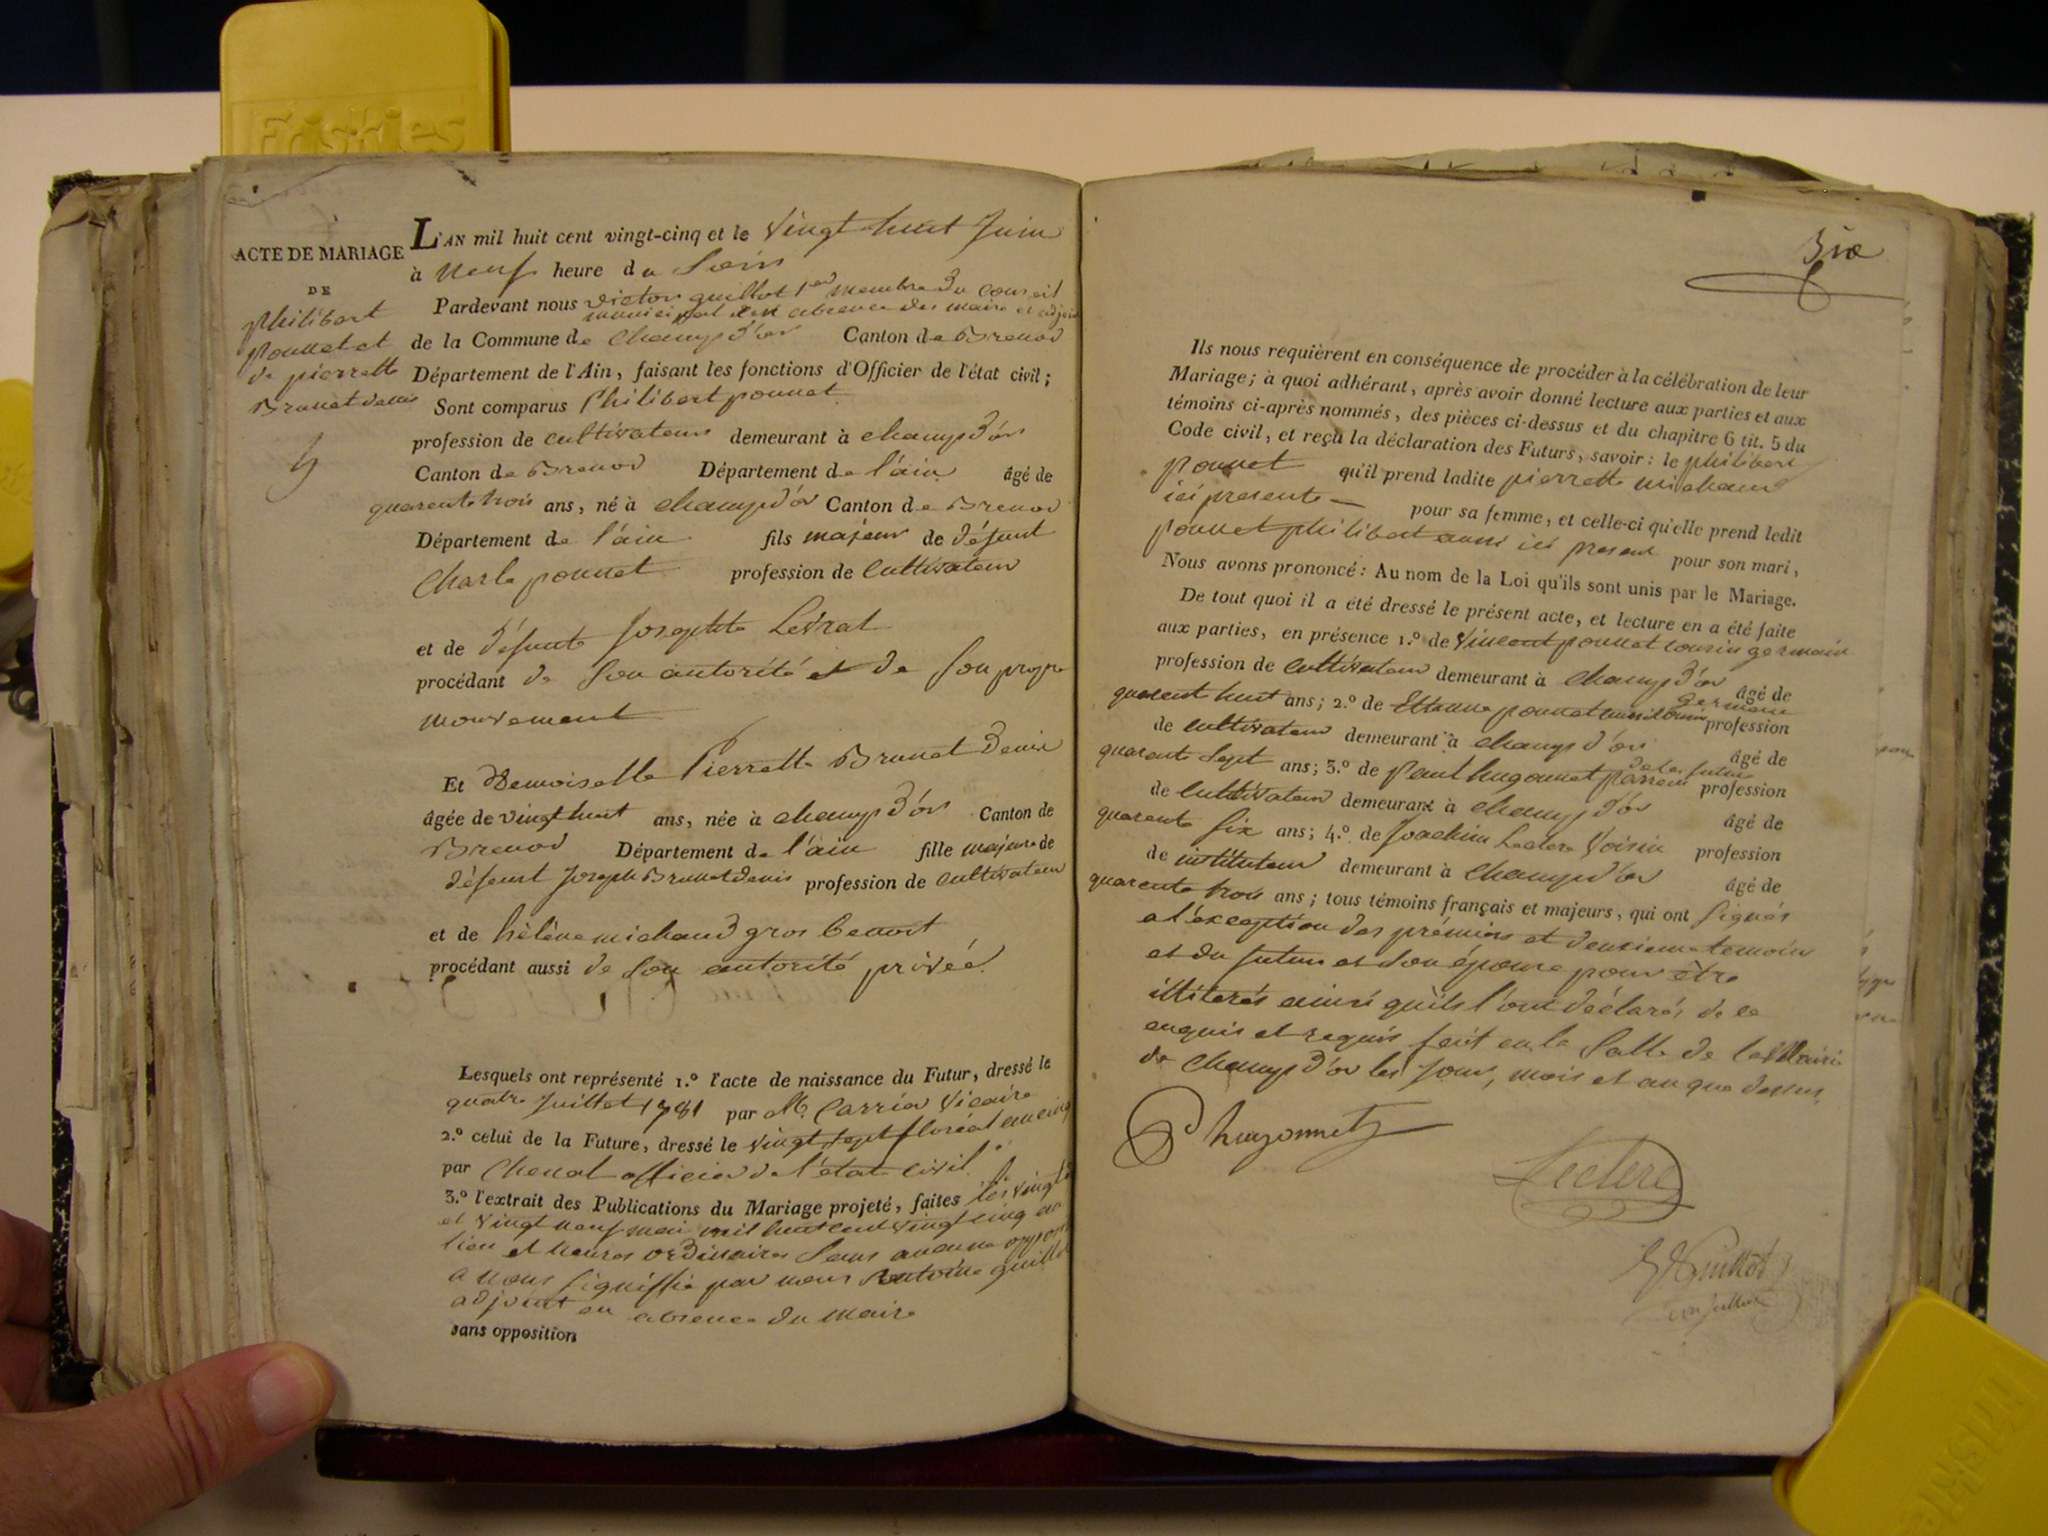 Friskies
ACTE DE MARIAGE
DE
philibert
ponnet et
de pierrette
Brunet denis
L'AN mil huit cent vingt-cinq et le vingt huit Juin
à neuf heure du Soir
Pardevant nous victor guillot 1er membre du conseil
municipal en absence des maire et adjoint
de la Commune de Champd'or Canton de Brenod
Département de l'Ain, faisant les fonctions d'Officier de l'état civil;
Sont comparus Philibert ponnet
profession de cultivateur demeurant à champd'or
Canton de Brenod Département de l'ain âgé de
quarente trois ans, né à champd'or Canton de Brenod
Département de l'ain fils majeur de défunt
Charle ponnet profession de Cultivateur
et de défunte Josephte Levrat
procédant de Son autorité et de Son propre
mouvement
Et Demoiselle Pierrette Brunet Denis
âgée de vingt huit ans, née à champd'or Canton de
Brenod Département de l'ain fille majeure de
défunt Joseph Brunet denis profession de cultivateur
et de hélène michaud gros benoit
procédant aussi de Son autorité privée.
Lesquels ont représenté 1.º l'acte de naissance du Futur, dressé le
quatre Juillet 1781 par Mr. Carrier Vicaire
2.º celui de la Future, dressé le vingt Sept floréal an cinq
par Chenal officier de l'état civil.
3.º l'extrait des Publications du Mariage projeté, faites les vingt
et vingt neuf mai mil huit cent vingt cinq au
lieu et heures ordinaires Sans aucune
a nous Signiffié par nous antoine guillot
adjoint en absence du maire
sans opposition
Ils nous requièrent en conséquence de procéder à la célébration de leur
Mariage; à quoi adhérant, après avoir donné lecture aux parties et aux
témoins ci-après nommés, des pièces ci-dessus et du chapitre 6 tit. 5 du
Code civil, et reçu la déclaration des Futurs, savoir: le philibert
ponnet qu'il prend ladite pierrette michaud
ici presente pour sa femme, et celle-ci qu'elle prend ledit
ponnet philibert aussi ici present pour son mari,
Nous avons prononcé: Au nom de la Loi qu'ils sont unis par le Mariage.
De tout quoi il a été dressé le présent acte, et lecture en a été faite
aux parties, en présence 1.º de Vincent ponnet cousin germain
profession de Cultivateur demeurant à Champd'or âgé de
quarent huit ans; 2.º de Etienne ponnet aussi Cousin germain profession
de cultivateur demeurant à champd'or âgé de
quarente Sept ans; 3.º de Paul hugonnet parrein de la future profession
de Cultivateur demeurant à champd'or âgé de
quarente Six ans; 4.º de Joachim Leclerc Voisin profession
de instituteur demeurant à Champd'or âgé de
quarente trois ans; tous témoins français et majeurs, qui ont Signés
a l'exception des prémier et deuxieme temoin
et du futur et Son épouse pour être
illiterés ainsi qu'ils l'ont déclarés de ce
enquis et requis fait en la Salle de la Mairie
de Champd'or les Jour, mois et an que dessus.
P hugonnet
Leclerc
Guillot